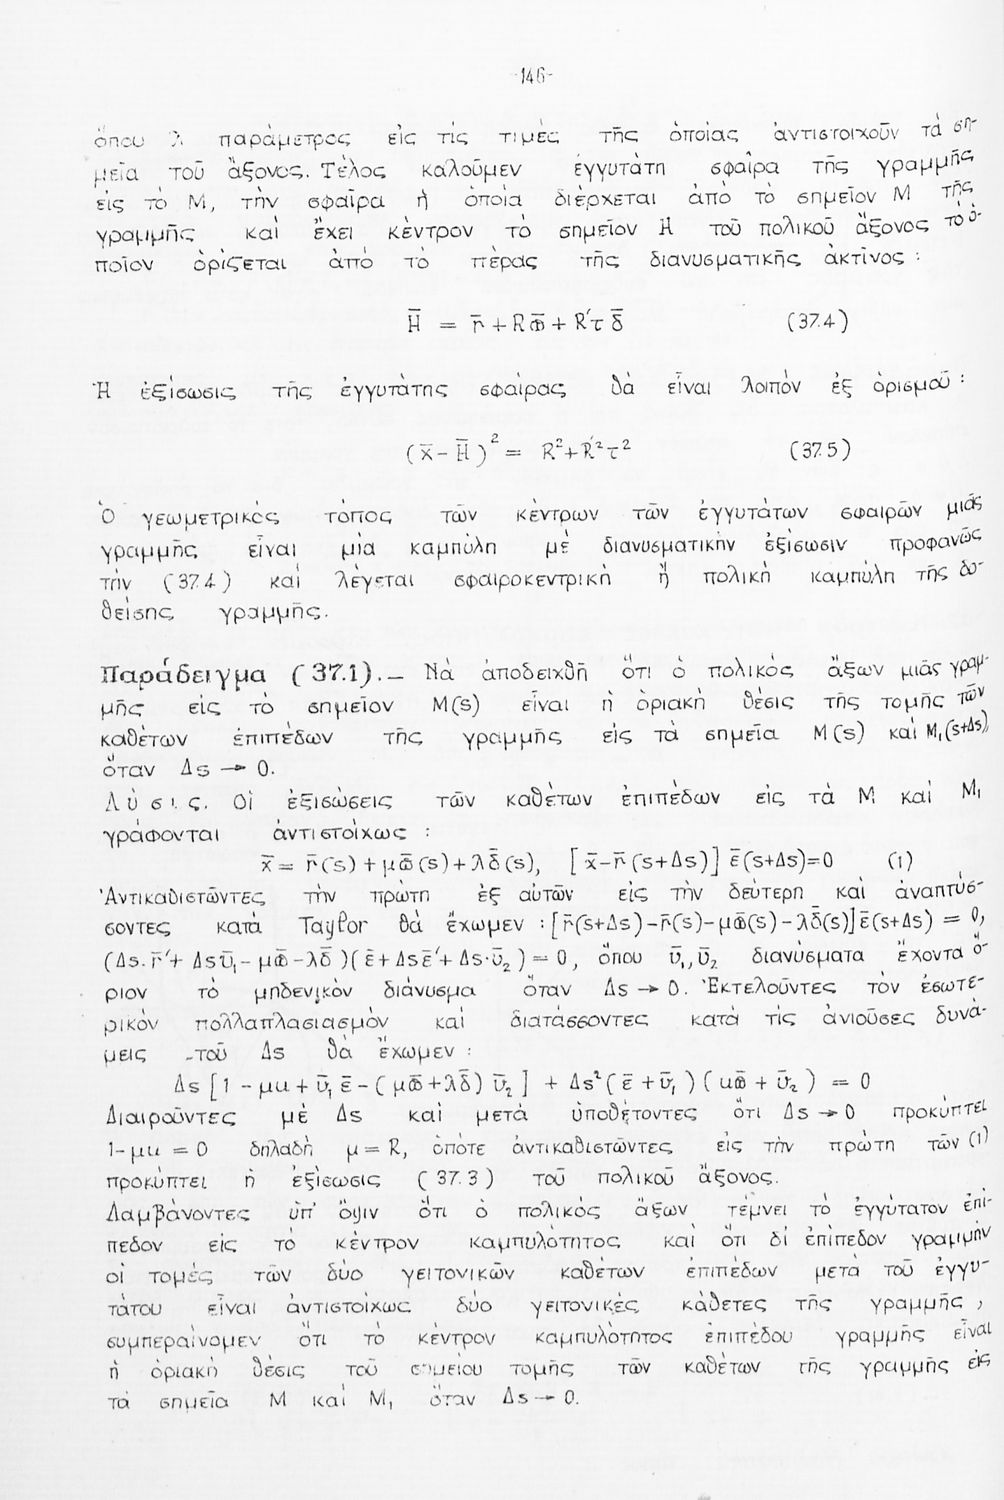 -146-
ὅπου λ παράμετρος εἰς τὶς τιμὲς τῆς ὁποίας ἀντιστοιχοῦν τὰ ση-
μεῖα τοῦ ἄξονος. Τέλος καλοῦμεν ἐγγυτάτη σφαῖρα τῆς γραμμῆς
εἰς τὸ M, τὴν σφαῖρα ἡ ὁποία διέρχεται ἀπὸ τὸ σημεῖον M τῆς
γραμμῆς καὶ ἔχει κέντρον τὸ σημεῖον H τοῦ πολικοῦ ἄξονος τὸ ὁ-
ποῖον ὁρίζεται ἀπὸ τὸ πέρας τῆς διανυσματικῆς ἀκτῖνος :
H̄ = r̄ + Rω̄ + R′τ δ̄ (37.4)
Ἡ ἐξίσωσις τῆς ἐγγυτάτης σφαίρας θὰ εἶναι λοιπὸν ἐξ ὁρισμοῦ :
(x̄ - H̄)² = R² + R′²τ² (37.5)
Ὁ γεωμετρικὸς τόπος τῶν κέντρων τῶν ἐγγυτάτων σφαιρῶν μιᾶς
γραμμῆς εἶναι μία καμπύλη μὲ διανυσματικὴν ἐξίσωσιν προφανῶς
τὴν (37.4) καὶ λέγεται σφαιροκεντρικὴ ἢ πολικὴ καμπύλη τῆς δο-
θείσης γραμμῆς.
Παράδειγμα (37.1).— Νὰ ἀποδειχθῆ ὅτι ὁ πολικὸς ἄξων μιᾶς γραμ-
μῆς εἰς τὸ σημεῖον M(s) εἶναι ἡ ὁριακὴ θέσις τῆς τομῆς τῶν
καθέτων ἐπιπέδων τῆς γραμμῆς εἰς τὰ σημεῖα M(s) καὶ M₁(s+Δs)
ὅταν Δs → 0.
Λύσις. Οἱ ἐξισώσεις τῶν καθέτων ἐπιπέδων εἰς τὰ M καὶ M₁
γράφονται ἀντιστοίχως :
x̄ = r̄(s) + μω̄(s) + λδ̄(s), [x̄ - r̄(s+Δs)] ε̄(s+Δs) = 0 (1)
Ἀντικαθιστῶντες τὴν πρώτη ἐξ αὐτῶν εἰς τὴν δεύτερη καὶ ἀναπτύσ-
σοντες κατὰ Taylor θὰ ἔχωμεν : [r̄(s+Δs) - r̄(s) - μω̄(s) - λδ̄(s)] ε̄(s+Δs) = 0,
(Δs.r̄′ + Δsῡ₁ - μω̄ - λδ̄)(ε̄ + Δsε̄′ + Δs·ῡ₂) = 0, ὅπου ῡ₁, ῡ₂ διανύσματα ἔχοντα ὅ-
ριον τὸ μηδενικὸν διάνυσμα ὅταν Δs → 0. Ἐκτελοῦντες τὸν ἐσωτε-
ρικὸν πολλαπλασιασμὸν καὶ διατάσσοντες κατὰ τὶς ἀνιοῦσες δυνά-
μεις τοῦ Δs θὰ ἔχωμεν :
Δs [1 - μu + ῡ₁ ε̄ - (μω̄ + λδ̄) ῡ₂] + Δs² (ε̄ + ῡ₁)(uω̄ + ῡ₂) = 0
Διαιροῦντες μὲ Δs καὶ μετὰ ὑποθέτοντες ὅτι Δs → 0 προκύπτει
1 - μu = 0 δηλαδὴ μ = R, ὁπότε ἀντικαθιστῶντες εἰς τὴν πρώτη τῶν (1)
προκύπτει ἡ ἐξίσωσις (37.3) τοῦ πολικοῦ ἄξονος.
Λαμβάνοντες ὑπ' ὄψιν ὅτι ὁ πολικὸς ἄξων τέμνει τὸ ἐγγύτατον ἐπί-
πεδον εἰς τὸ κέντρον καμπυλότητος καὶ ὅτι δι' ἐπίπεδον γραμμὴν
οἱ τομὲς τῶν δύο γειτονικῶν καθέτων ἐπιπέδων μετὰ τοῦ ἐγγυ-
τάτου εἶναι ἀντιστοίχως δύο γειτονικὲς κάθετες τῆς γραμμῆς,
συμπεραίνομεν ὅτι τὸ κέντρον καμπυλότητος ἐπιπέδου γραμμῆς εἶναι
ἡ ὁριακὴ θέσις τοῦ σημείου τομῆς τῶν καθέτων τῆς γραμμῆς εἰς
τὰ σημεῖα M καὶ M₁ ὅταν Δs → 0.